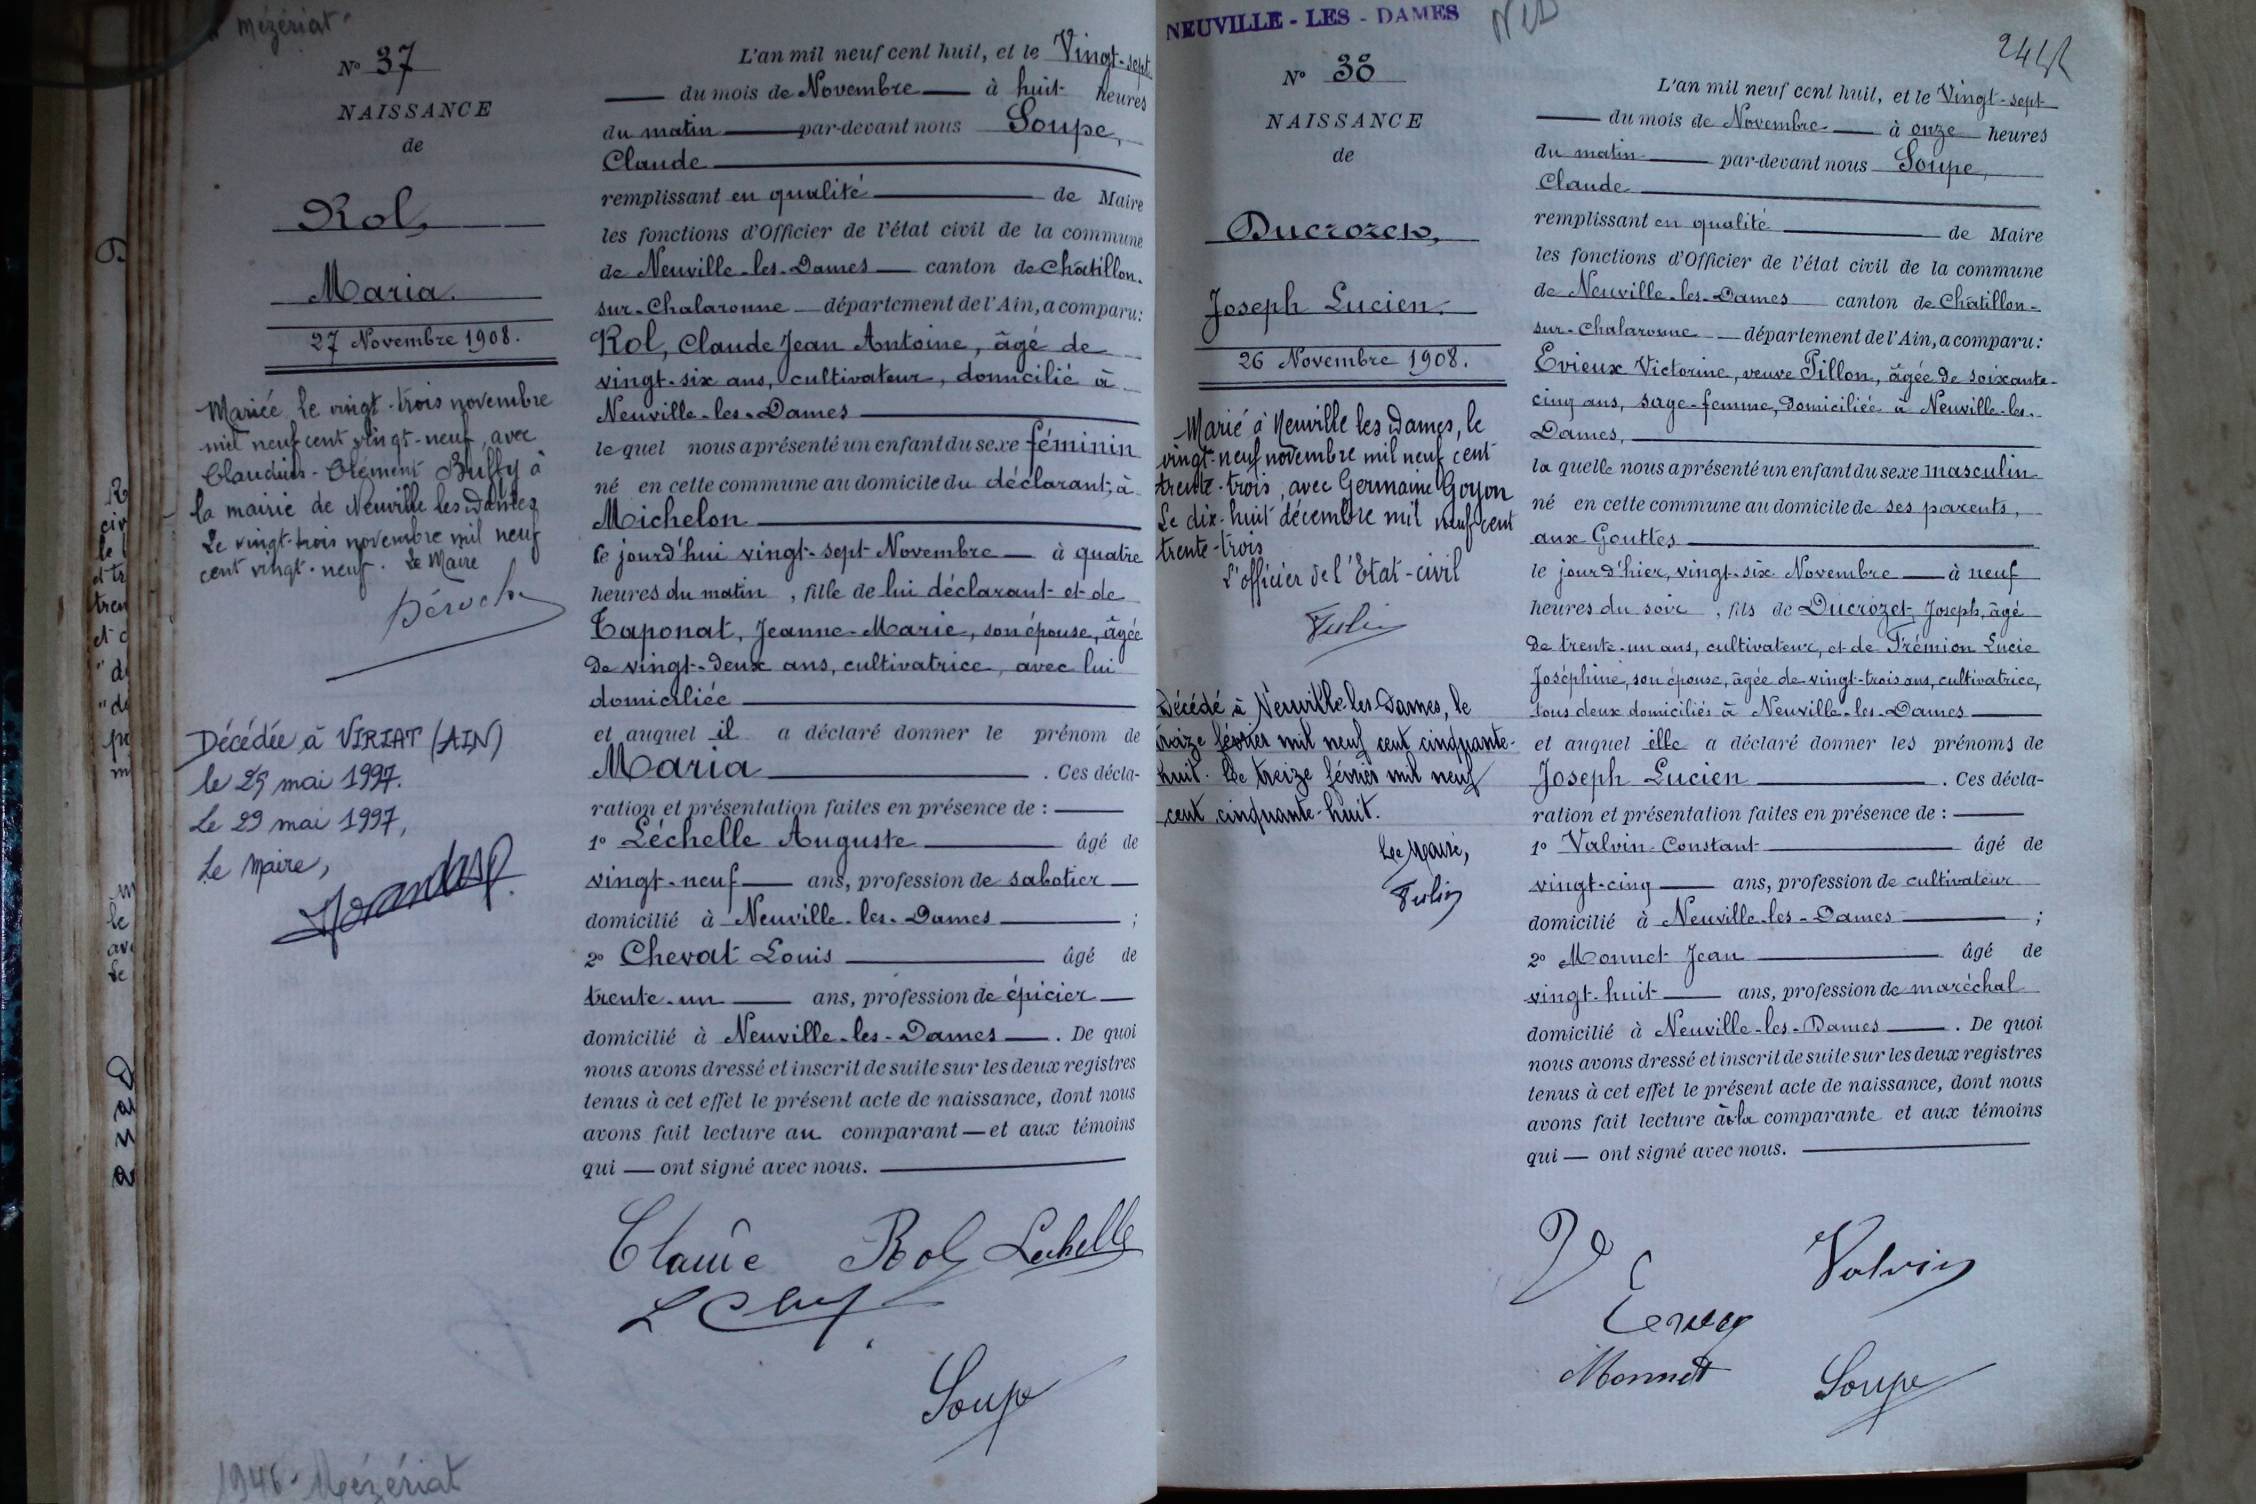 Mézériat
N° 37
NAISSANCE
de
Rol,
Maria.
27 Novembre 1908.
Mariée le vingt-trois novembre
mil neuf cent vingt-neuf, avec
Claudius-Clément Buffy à
la mairie de Neuville les Dames
Le vingt-trois novembre mil neuf
cent vingt-neuf. Le Maire
Décédée à VIRIAT (AIN)
le 25 mai 1997.
Le 29 mai 1997,
Le Maire,
1946. Mézériat
L'an mil neuf cent huit, et le Vingt-sept
du mois de Novembre à huit heures
du matin par-devant nous Soupe,
Claude
remplissant en qualité de Maire
les fonctions d'Officier de l'état civil de la commune
de Neuville-les-Dames canton de Châtillon-
sur-Chalaronne département de l'Ain, a comparu:
Rol, Claude Jean Antoine, âgé de
vingt-six ans, cultivateur, domicilié à
Neuville-les-Dames
le quel nous a présenté un enfant du sexe féminin
né en cette commune au domicile du déclarant, à
Michelon
ce jourd'hui vingt-sept Novembre à quatre
heures du matin, fille de lui déclarant et de
Taponat, Jeanne-Marie, son épouse, âgée
de vingt-deux ans, cultivatrice, avec lui
domiciliée
et auquel il a déclaré donner le prénom de
Maria. Ces décla-
ration et présentation faites en présence de :
1° Léchelle Auguste âgé de
vingt-neuf ans, profession de sabotier
domicilié à Neuville-les-Dames ;
2° Chevat Louis âgé de
trente-un ans, profession de épicier
domicilié à Neuville-les-Dames. De quoi
nous avons dressé et inscrit de suite sur les deux registres
tenus à cet effet le présent acte de naissance, dont nous
avons fait lecture au comparant et aux témoins
qui ont signé avec nous.
Claude Rol Lechelle
Soupe
NEUVILLE-LES-DAMES
N° 38
NAISSANCE
de
Ducrozet,
Joseph Lucien.
26 Novembre 1908.
Marié à Neuville les Dames, le
vingt-neuf novembre mil neuf cent
trente-trois, avec Germaine Goyon
Le dix-huit décembre mil neuf cent
trente-trois
L'officier de l'Etat-civil
Décédé à Neuville-les-Dames, le
treize février mil neuf cent cinquante-
huit. Le treize février mil neuf
cent cinquante-huit.
Le Maire,
L'an mil neuf cent huit, et le Vingt-sept
du mois de Novembre à onze heures
du matin par-devant nous Soupe,
Claude
remplissant en qualité de Maire
les fonctions d'Officier de l'état civil de la commune
de Neuville-les-Dames canton de Châtillon-
sur-Chalaronne département de l'Ain, a comparu:
Evieux Victorine, veuve Pillon, âgée de soixante-
cinq ans, sage-femme, domiciliée à Neuville-les-
Dames,
la quelle nous a présenté un enfant du sexe masculin
né en cette commune au domicile de ses parents,
aux Gouttes
le jour d'hier, vingt-six Novembre à neuf
heures du soir, fils de Ducrozet Joseph, âgé
de trente-un ans, cultivateur, et de Trémion Lucie
Joséphine, son épouse, âgée de vingt-trois ans, cultivatrice,
tous deux domiciliés à Neuville-les-Dames
et auquel elle a déclaré donner les prénoms de
Joseph Lucien. Ces décla-
ration et présentation faites en présence de :
1° Valvin Constant âgé de
vingt-cinq ans, profession de cultivateur
domicilié à Neuville-les-Dames ;
2° Monnet Jean âgé de
vingt-huit ans, profession de maréchal
domicilié à Neuville-les-Dames. De quoi
nous avons dressé et inscrit de suite sur les deux registres
tenus à cet effet le présent acte de naissance, dont nous
avons fait lecture à la comparante et aux témoins
qui ont signé avec nous.
Valvin
Monnet Soupe